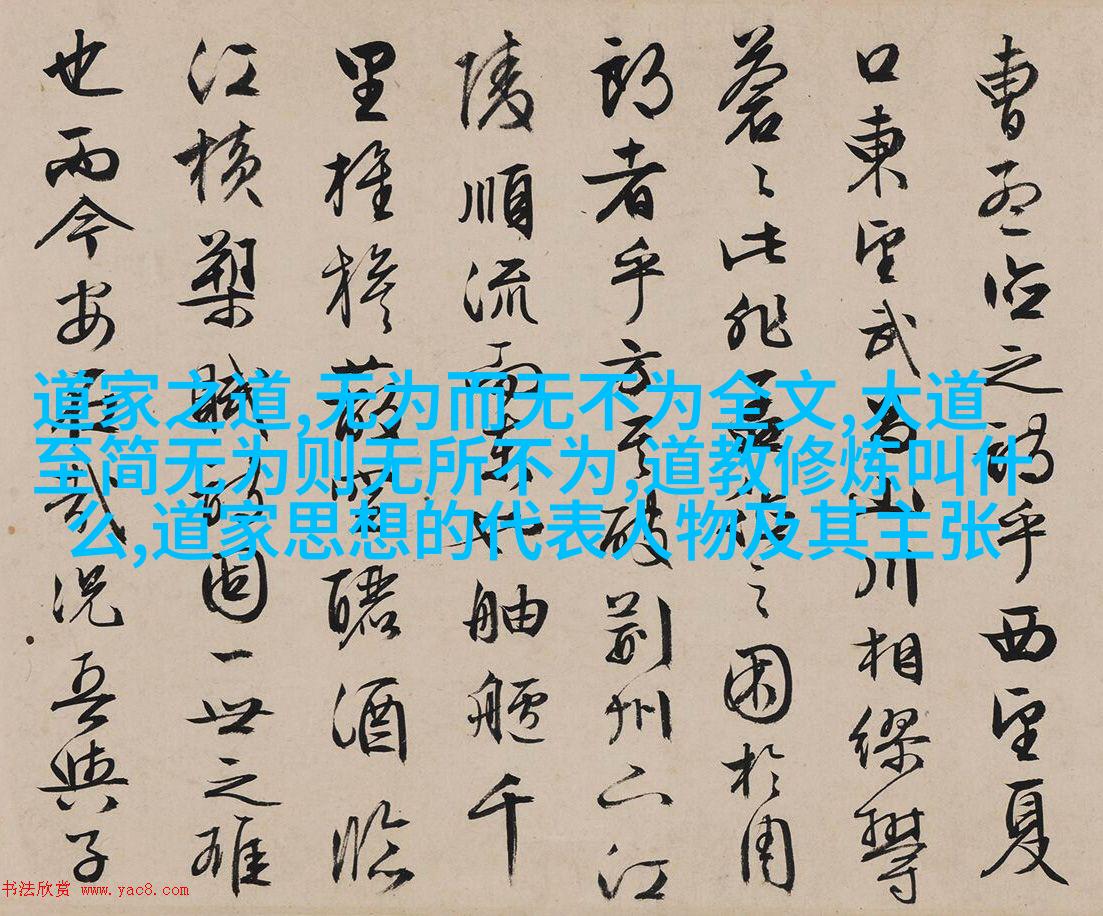 曹孟德之詩乎西望夏
口東望武昌山川相繆鬱
蒼々此非孟德之困於周
郎者乎方其破荊州下江
陵順流而東也舳艫千
里旌旗蔽空釃酒臨
江橫槊賦詩固一世之雄
也而今安在哉況吾與子
道家之道,无为而无不为全文,大道
至简无为则无所不为,道教修炼叫什
么,道家思想的代表人物及其主张
书法欣赏 www.yac8.com